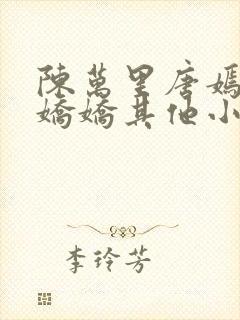 陳萬里唐嫣
嬌嬌其他小
李玲芳